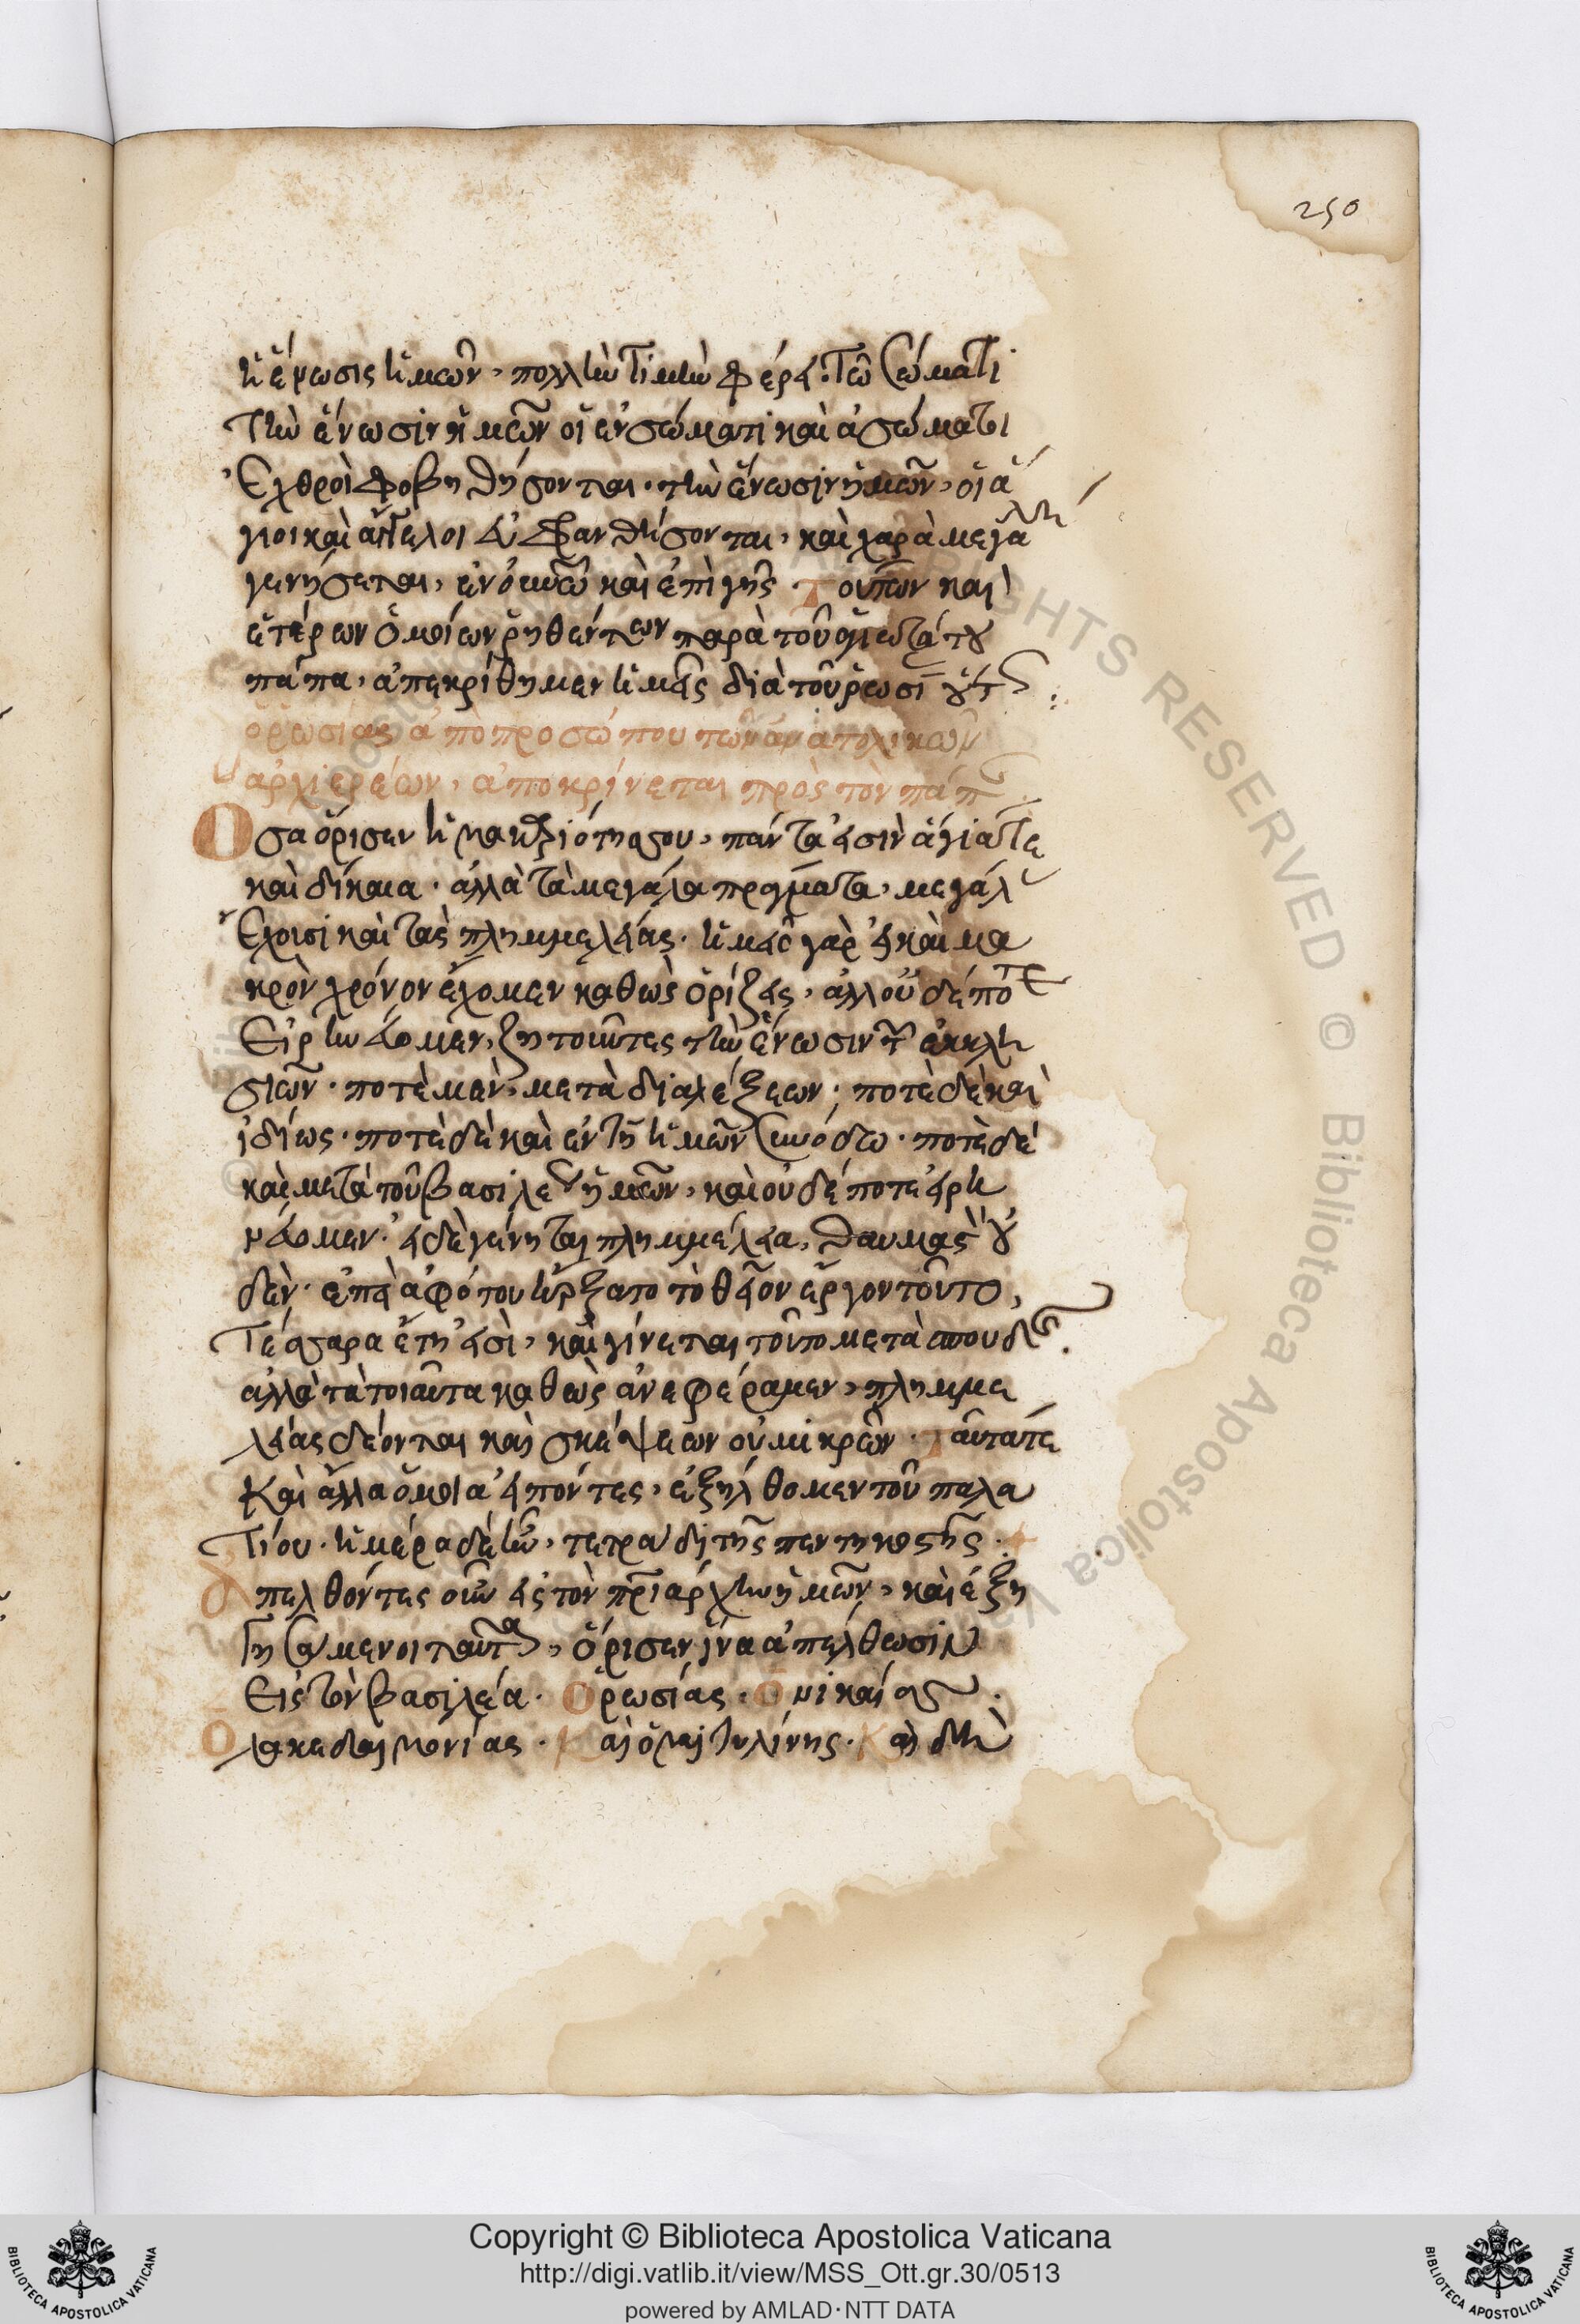 250
ἡ ἕνωσις ἡμῶν, πολλὴν τιμὴν φέρει τῷ σώματι
τὴν ἕνωσιν ἡμῶν οἱ ἐν σώματι καὶ ἀσώματοι
ἐχθροὶ φοβηθήσονται. τὴν ἕνωσιν ἡμῶν, οἱ ἅ
γιοι καὶ ἄγγελοι εὐφρανθήσονται, καὶ χαρὰ μεγάλη
γενήσεται, ἐν οὐνῷ καὶ ἐπὶ γῆς. Τούτων καὶ
ἑτέρων ὁμοίων ῥηθέντων παρὰ τοῦ ἁγιωτάτου
πάπα, ἀπεκρίθημεν ἡμεῖς διὰ τοῦ ῥωσί οὕτως:
ὁ ῥωσίας ἀπὸ προσώπου τῶν ἀνατολικῶν
ἀρχιερέων, ἀποκρίνεται πρὸς τὸν πάπ
Ὅσα ὅρισεν ἡ μακαριότης σου, πάντα εἰσὶν ἅγιά τε
καὶ δίκαια. ἀλλὰ τὰ μεγάλα πράγματα, μεγάλ
ἔχουσι καὶ τὰς πλημμελείας. ἡμεῖς γὰρ εἰ καὶ μα
κρὸν χρόνον ἔχομεν καθὼς ὁρίζεις, ἀλλ οὐδέποτε
εἰρηνεύομεν, ζητοῦντες τὴν ἕνωσιν τῶν ἐκκλη
σιῶν. ποτὲ μὲν, μετὰ διαλέξεων, ποτὲ δὲ καὶ
ἰδίως. ποτὲ δὲ καὶ ἐν τῇ ἡμῶν συνόδω. ποτὲ δὲ
καὶ μετὰ τοῦ βασιλέως ἡμῶν, καὶ οὐδέποτε εἰρη
νεύομεν. εἰ δὲ γένηται πλημμέλεια, θαυμαστὸν οὐ
δὲν. ἐπεὶ ἀφότου ἤρξατο τὸ θεῖον ἔργον τοῦτο,
τέσσαρα ἔτη εἰσὶ, καὶ γίνεται τοῦτο μετὰ σπουδῆς.
ἀλλὰ τὰ τοιαῦτα καθὼς ἀνεφέραμεν, πλημμε
λείας δέονται καὶ σκέψεων οὐ μικρῶν. Ταῦτά τε
καὶ ἄλλα ὅμοια εἰπόντες, ἐξήλθομεν τοῦ παλα
τίου. ἡμέρα δὲ ἦν, τετράδι τῆς πεντηκοστῆς.
ἀπελθόντες οὖν εἰς τὸν πριάρχην ἡμῶν, καὶ ἐξη
γησάμενοι ταῦτα, ὅρισεν ἵνα ἀπέλθωσιν
εἰς τὸν βασιλέα. Ὁ ῥωσίας. Ὁ νικαίας.
Ὁ λακεδαιμονίας. Καὶ ὁ μιτυλίνης. Καὶ δὴ
Copyright © Biblioteca Apostolica Vaticana
http://digi.vatlib.it/view/MSS_Ott.gr.30/0513
powered by AMLAD·NTT DATA
BIBLIOTECA APOSTOLICA VATICANA
BIBLIOTECA APOSTOLICA VATICANA